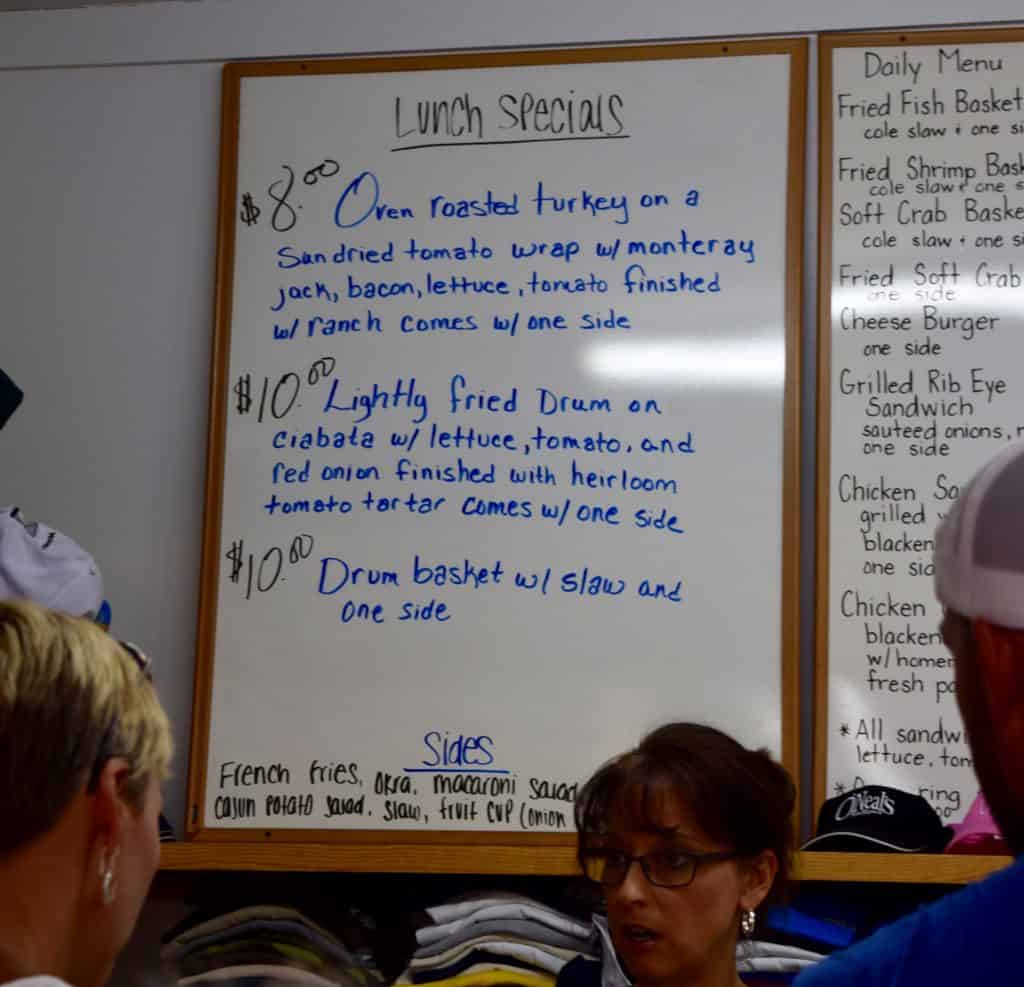 Lunch Specials
$8.00 Oven roasted turkey on a
Sundried tomato wrap w/ monteray
jack, bacon, lettuce, tomato finished
w/ ranch comes w/ one side
$10.00 Lightly fried Drum on
ciabata w/ lettuce, tomato, and
red onion finished with heirloom
tomato tartar comes w/ one side
$10.00 Drum basket w/ slaw and
one side
Sides
French fries, okra, macaroni salad
cajun potato salad, slaw, fruit cup (onion
Daily Menu
Fried Fish Basket
cole slaw + one si
Fried Shrimp Bask
cole slaw + one s
Soft Crab Baske
cole slaw + one si
Fried Soft Crab
one side
Cheese Burger
one side
Grilled Rib Eye
Sandwich
sauteed onions,
one side
Chicken Sa
grilled
blacken
one sid
Chicken
blacken
w/homem
fresh po
*All sandwi
lettuce, tom
ring
O'Neals